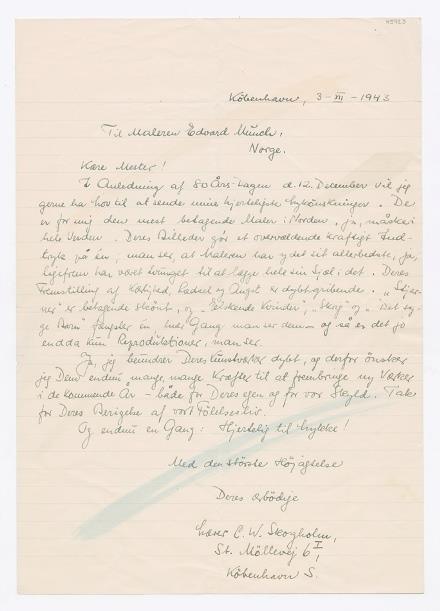 45923
København, 3-XII-1943
Til Maleren Edvard Munch,
Norge.
Kære Mester!
I Anledning af 80 Års-Dagen d. 12. December vil jeg
gerne ha' lov til at sende mine hjerteligste Lykønskninger. De
er for mig den mest betagende Maler i Norden, ja, måske i
hele Verden. Deres Billeder gör et overvældende kraftigt Ind-
tryk på én; man ser, at Maleren har ydet sit allerbedste, ja,
ligefrem har været tvunget til at lægge hele sin Sjæl i det. Deres
Fremstilling af Kærlighed, Lidelse og Angst er dybtgribende. "Stjer-
ner" er betagende skönt, og "Elskende Kvinder", "Skrig" og "Det sy-
ge Barn" fængsler én, hver Gang man ser dem – og så er det jo
endda kun Reproduktioner, man ser.
Ja, jeg beundrer Deres Kunstværker dybt, og derfor önsker
jeg Dem endnu mange, mange Kræfter til at frembringe ny Værker
i de kommende År – både for Deres egen og for vor Skyld. Tak
for Deres Berigelse af vort Fölelsesliv.
Og endnu en Gang: Hjertelig til Lykke!
Med den störste Höjagtelse
Deres ærbödige
Lærer C. W. Skogholm,
St. Möllevej 6 I,
København S.